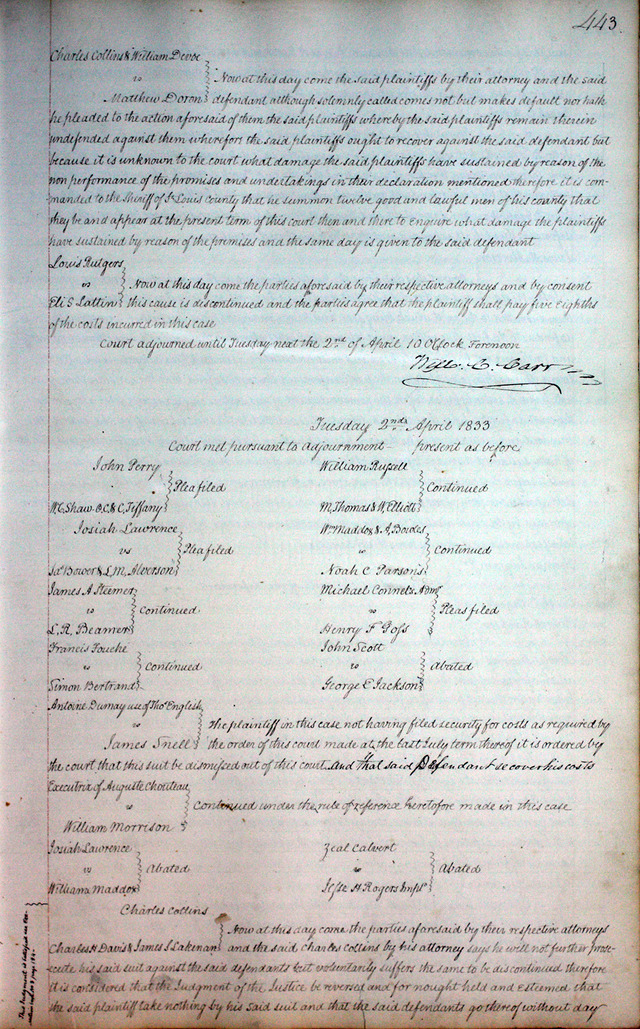 443.
Charles Collins & William Devoe
vs } Now at this day come the said plaintiffs by their attorney and the said
Matthew Doron } defendant although solemnly called comes not but makes default nor hath
he pleaded to the action aforesaid of them the said plaintiffs whereby the said plaintiffs remain therein
undefended against them wherefore the said plaintiffs ought to recover against the said defendant but
because it is unknown to the court what damage the said plaintiffs have sustained by reason of the
non performance of the promises and undertakings in their declaration mentioned therefore it is com-
manded to the Sheriff of St Louis county that he summon twelve good and lawful men of his county that
they be and appear at the present term of this court then and there to Enquire what damage the plaintiffs
have sustained by reason of the premises and the same day is given to the said defendant
Louis Rutgers
vs } Now at this day come the parties aforesaid by their respective attorneys and by consent
Eli S Lattin } this cause is discontinued and the parties agree that the plaintiff shall pay five Eighths
of the costs incurred in this case
Court adjourned until Tuesday next the 2nd of April 10 OClock Forenoon
Will. C. Carr
Tuesday 2nd April 1833
Court met pursuant to adjournment present as before
John Perry
} Plea filed
W.C. Shaw & C Tiffany
William Russell
} Continued
M Thomas & W Elliott
Josiah Lawrence
vs } Plea filed
Jas Bower & L.M. Alverson
Wm Maddox & A. Bowles
vs } Continued
Noah C Parsons
James A Steemer
vs } Continued
L. R. Beamer
Michael Connels Admr
vs } Pleas filed
Henry F Goss
Francis Fouche
vs } Continued
Simon Bertrand
John Scott
vs } Abated
George E Jackson
Antoine Dumay use of Thos English
vs } the plaintiff in this case not having filed security for costs as required by
James Snell } the order of this court made at the last July term thereof it is ordered by
the court that this suit be dismissed out of this court and that said Defendant recover his costs
Executrix of Auguste Chouteau
vs } Continued under the rule of reference heretofore made in this case
William Morrison
Josiah Lawrence
vs } Abated
William Maddox
Zeal Calvert
vs } Abated
Jesse H Rogers
Charles Collins
} Now at this day come the parties aforesaid by their respective attorneys
Charles H Davis & James S Lakenan } and the said Charles Collins by his attorney says he will not further prose-
cute his said suit against the said defendants but voluntarily suffers the same to be discontinued therefore
it is considered that the Judgment of the Justice be reversed and for nought held and esteemed that
the said plaintiff take nothing by his said suit and that the said defendants go thereof without day